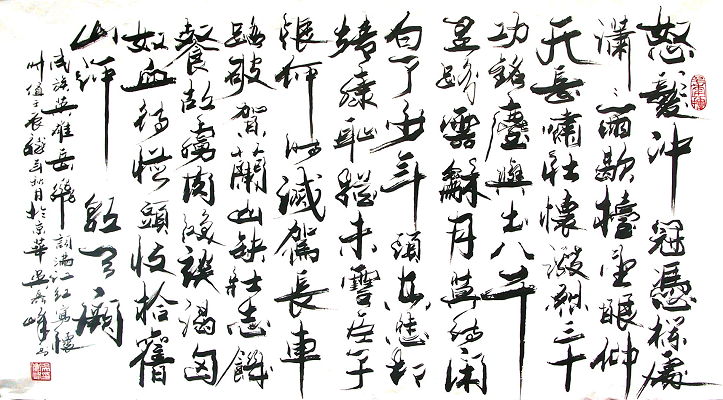 怒髮冲冠憑欄處
瀟瀟雨歇擡望眼仰
天長嘯壯懷激烈三十
功名塵與土八千
里路雲龢月莫等閑
白了少年頭空悲切
靖康恥猶未雪臣子
恨何時滅駕長車
踏破賀蘭山缺壯志饑
餐胡虜肉笑談渴匈
奴血待從頭收拾舊
山河朝天闕
民族英雄岳飛詞滿江紅寫懷
時值壬辰年秋月於京華吴岳峰書